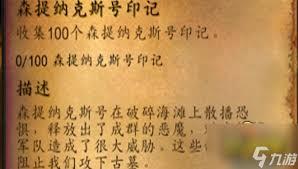 森提纳克斯号印记
收集100个森提纳克斯号印记。
0/100 森提纳克斯号印记
描述
森提纳克斯号在破碎海滩上散播恐
惧，释放出了成群的恶魔，
军队造成了很大威胁。这些
阻止我们攻下古墓。
九游